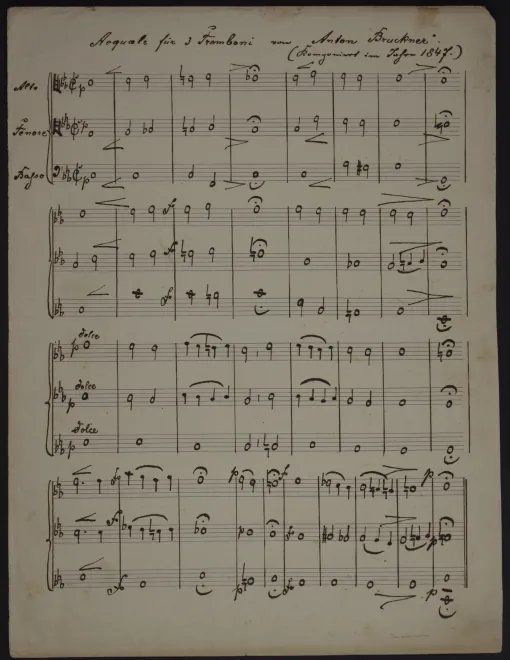 Aequale für 3 Tromboni von Anton Bruckner.
(Komponirt im Jahre 1847.)
Alto
p
Tenore
p
Basso
p
f
f
f
dolce
p
dolce
p
dolce
p
f p f
f p f p
f p f p